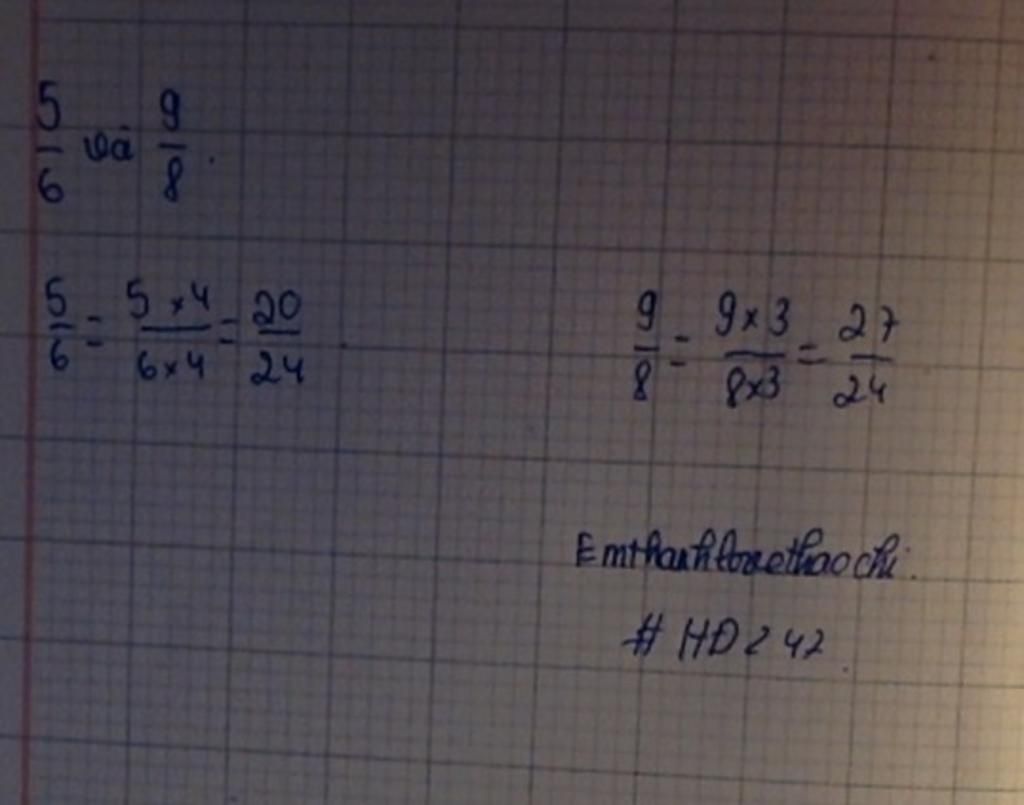 5/6 và 9/8.
5/6 = 5×4/6×4 = 20/24
9/8 = 9×3/8×3 = 27/24
Emthanhlovethaochi.
# HD247